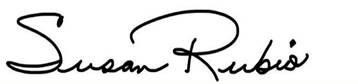 Susan Rubio